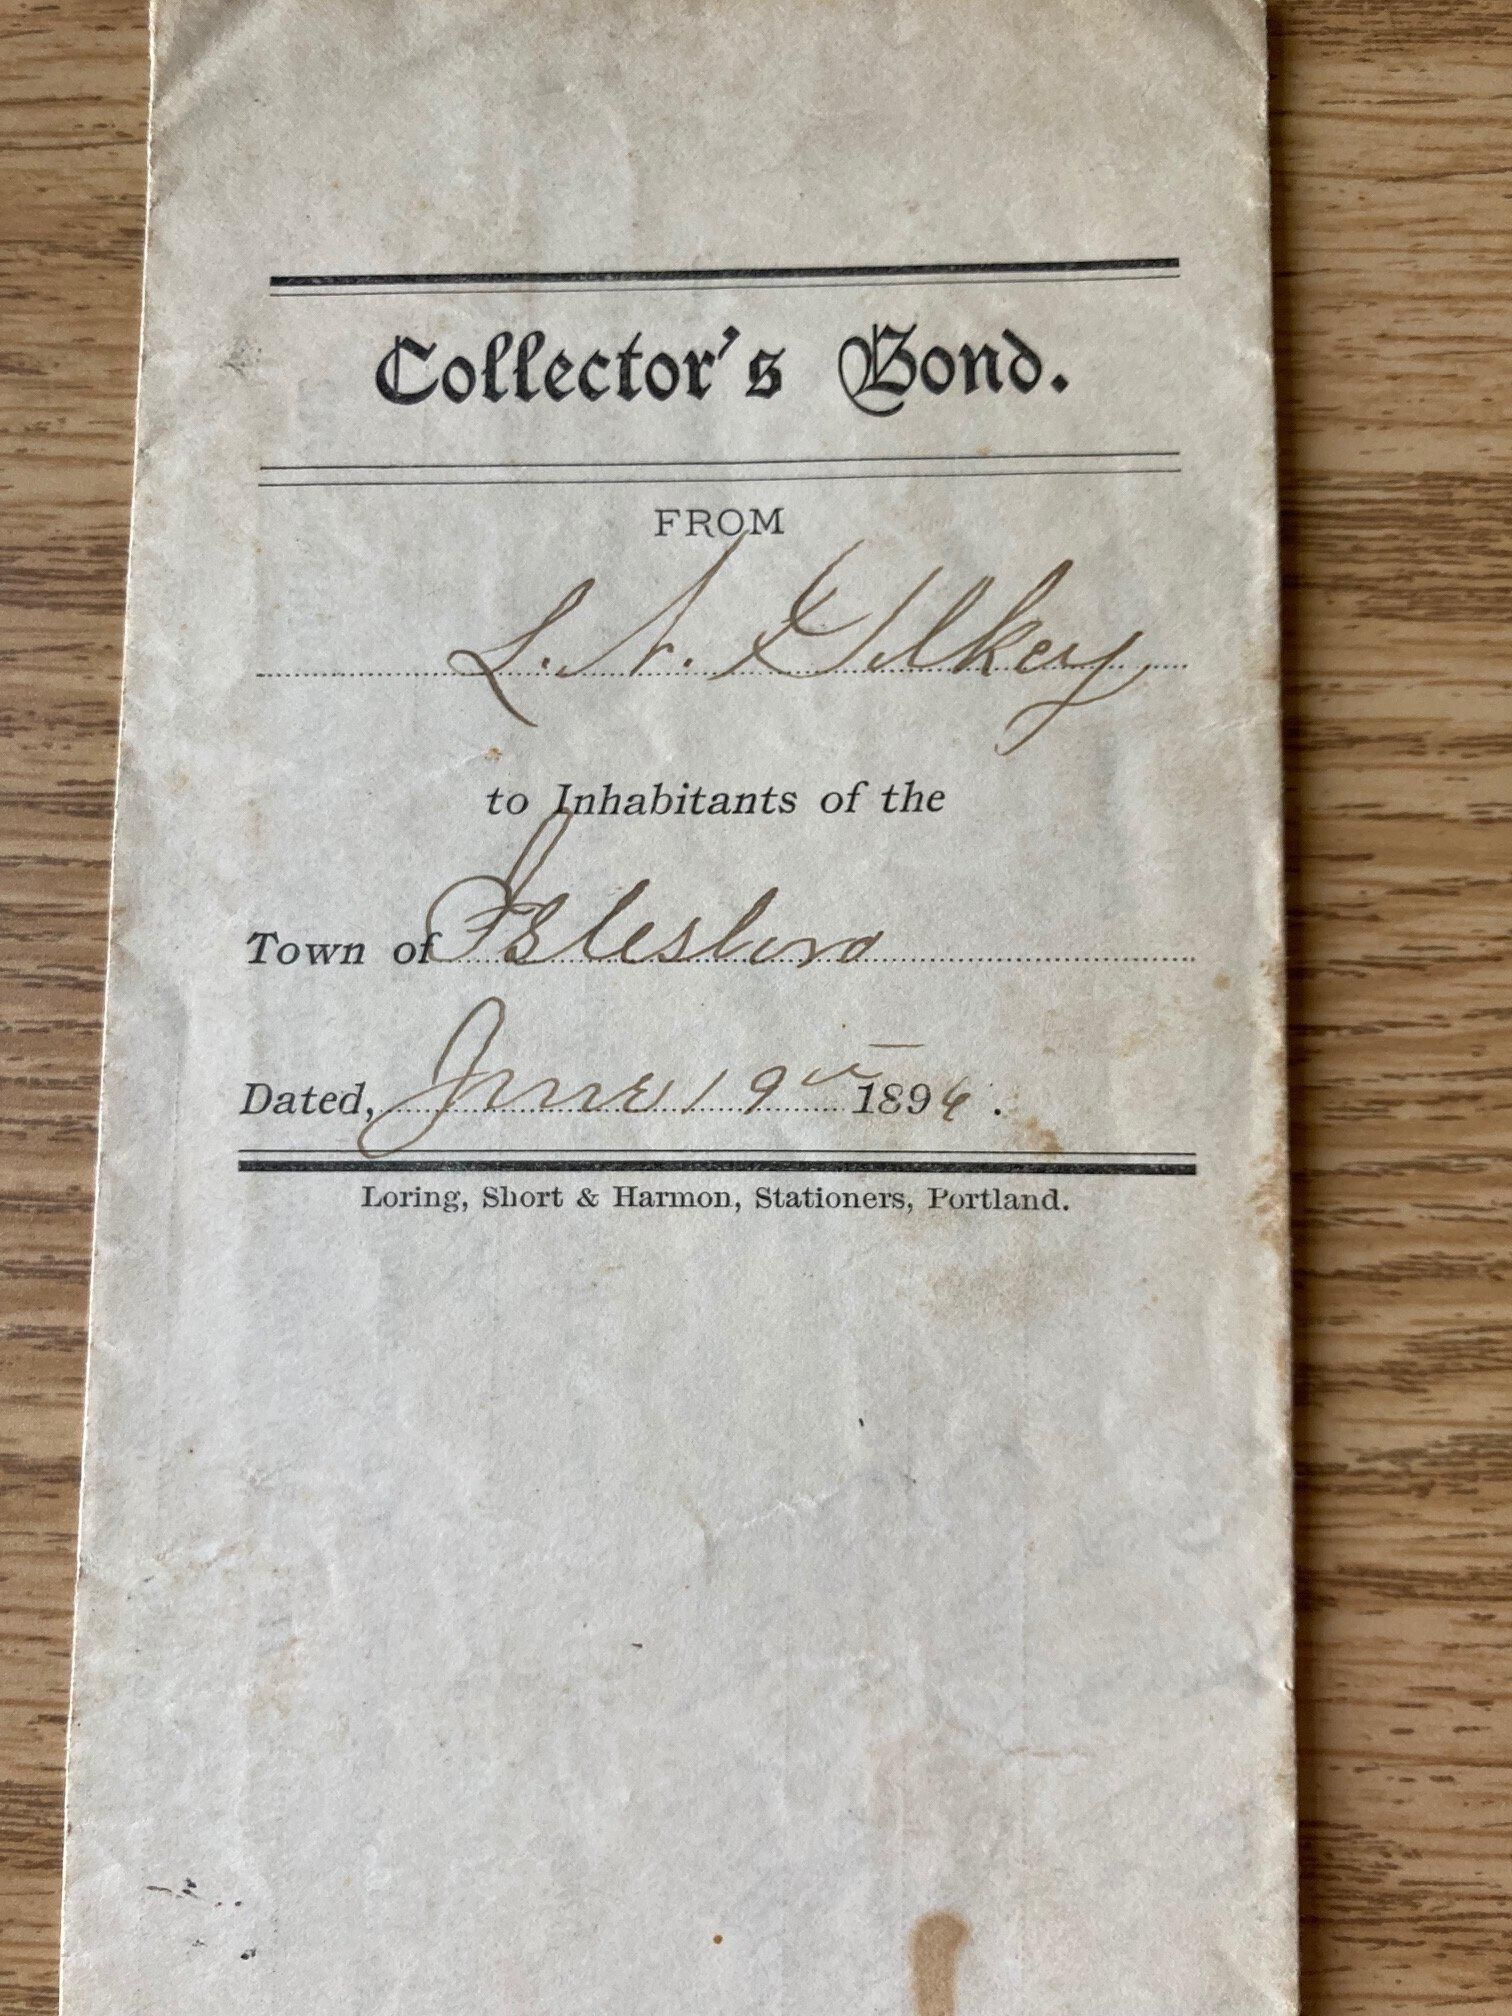 Collector's Bond.
FROM
L. N. Gilkey
to Inhabitants of the
Town of Islesboro
Dated, June 19th 1896.
Loring, Short & Harmon, Stationers, Portland.